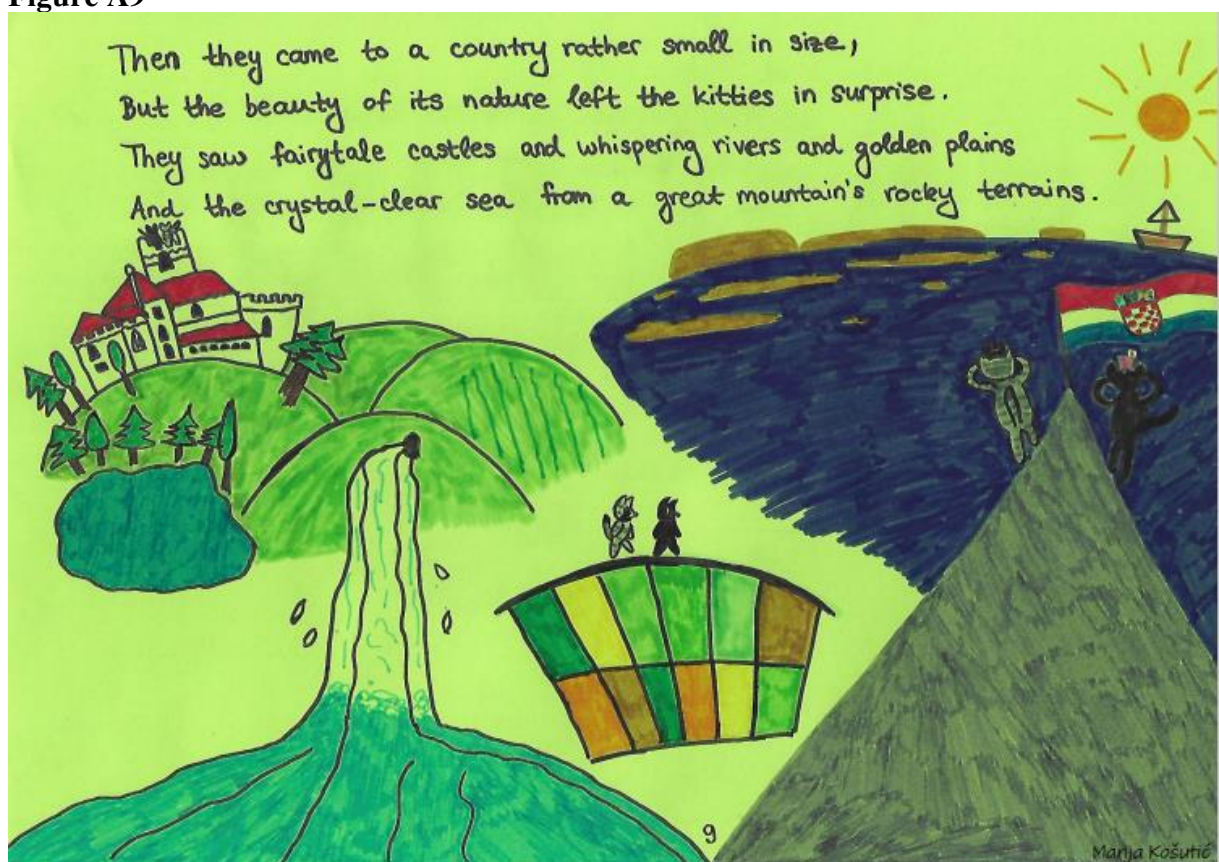 Figure A9
Then they came to a country rather small in size,
But the beauty of its nature left the kitties in surprise.
They saw fairytale castles and whispering rivers and golden plains
And the crystal-clear sea from a great mountain's rocky terrains.
9
Marija Košutić